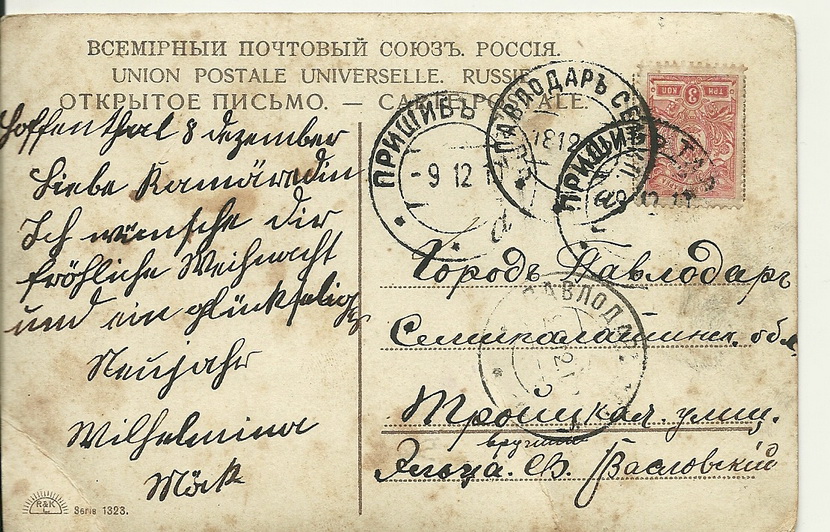 ВСЕМІРНЫЙ ПОЧТОВЫЙ СОЮЗЪ. РОССІЯ.
UNION POSTALE UNIVERSELLE. RUSSIE.
ОТКРЫТОЕ ПИСЬМО. — CARTE POSTALE.
Hoffenthal 8 dezember
Liebe Kamäredin
Ich wünsche dir
fröhliche Weihnacht
und ein glückselig
Neujahr
Wilhelmina
Mäck
ПРИШИБЪ ТАВ
-9 12 1
ПАВЛОДАРЪ СЕМИП.
1812
ПРИШИБЪ ТАВ
-9 12 11
ТРИ 3 КОП
Городъ Павлодаръ
Семипалатинск. обл.
ПАВЛОДАР
Троицкая. улиц.
вручить
Эльza. Св. Васловскій
R&K
L
Serie 1323.